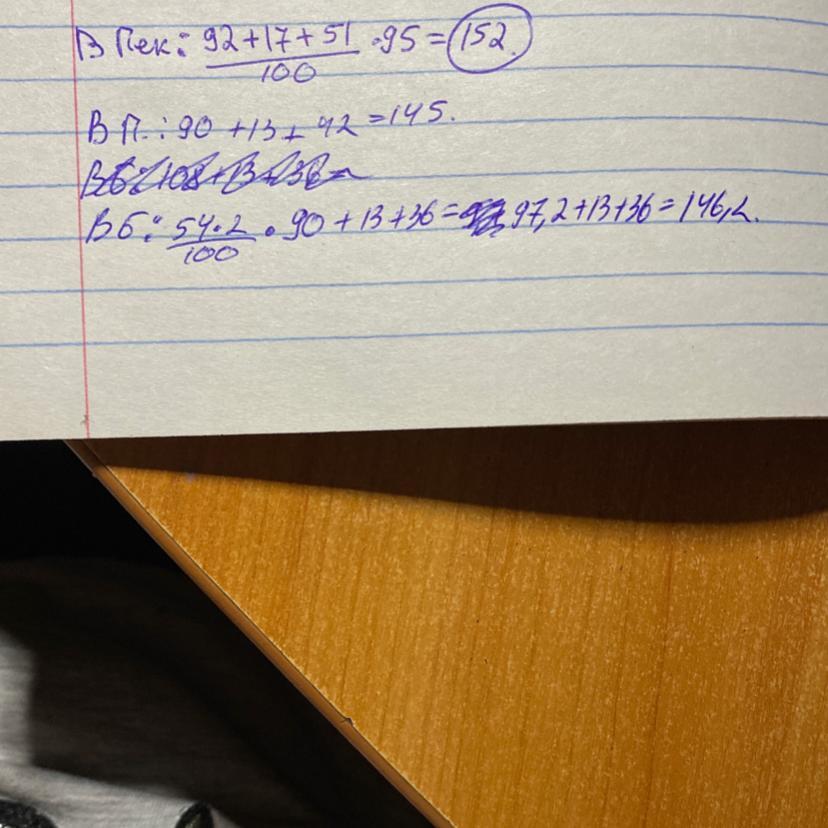 В Пек: (92+17+51)/100 · 95 = 152.
В П.: 90 + 13 + 42 = 145.
В Б: 54·2/100 · 90 + 13 + 36 = 97,2 + 13 + 36 = 146,2.